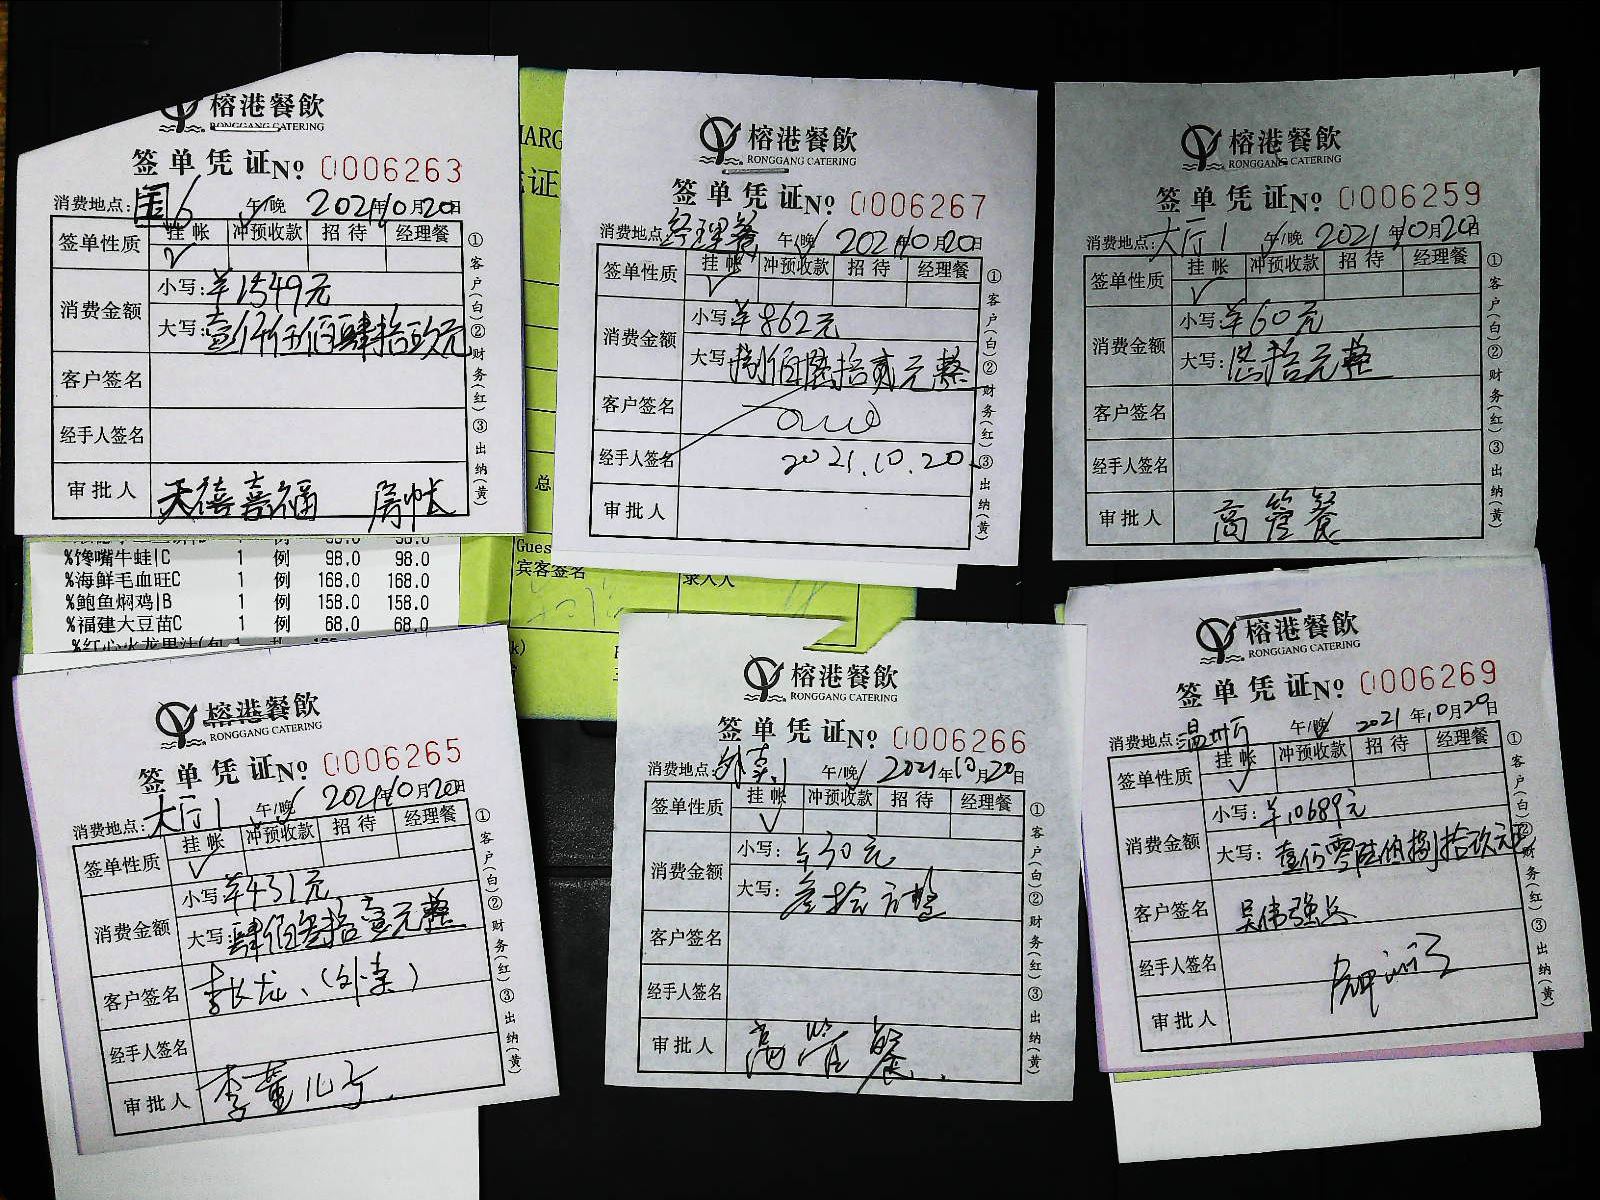 榕港餐飲
RONGGANG CATERING
签单凭证No 0006263
消费地点: 国6 午/晚 2021年10月20日
签单性质 挂帐 冲预收款 招待 经理餐
✓
消费金额 小写: ¥1549元
大写: 壹仟伍佰肆拾玖元
客户签名
经手人签名
审批人 天禧嘉福 房帐
①客户(白)②财务(红)③出纳(黄)
%馋嘴牛蛙|C 1 例 98.0 98.0
%海鲜毛血旺C 1 例 168.0 168.0
%鲍鱼焖鸡|B 1 例 158.0 158.0
%福建大豆苗C 1 例 68.0 68.0
证
总
Gues
宾客签名
录入人
榕港餐飲
RONGGANG CATERING
签单凭证No 0006267
消费地点: 经理餐 午/晚 2021年10月20日
签单性质 挂帐 冲预收款 招待 经理餐
✓
消费金额 小写: ¥862元
大写: 捌佰陆拾贰元整
客户签名
经手人签名 2021.10.20
审批人
①客户(白)②财务(红)③出纳(黄)
榕港餐飲
RONGGANG CATERING
签单凭证No 0006259
消费地点: 大厅1 午/晚 2021年10月20日
签单性质 挂帐 冲预收款 招待 经理餐
✓
消费金额 小写: ¥60元
大写: 陆拾元整
客户签名
经手人签名
审批人 高管餐
①客户(白)②财务(红)③出纳(黄)
榕港餐飲
RONGGANG CATERING
签单凭证No 0006265
消费地点: 大厅1 午/晚 2021年10月20日
签单性质 挂帐 冲预收款 招待 经理餐
✓
消费金额 小写: ¥431元
大写: 肆佰叁拾壹元整
客户签名 李长龙、(外卖)
经手人签名
审批人 李董儿子
①客户(白)②财务(红)③出纳(黄)
榕港餐飲
RONGGANG CATERING
签单凭证No 0006266
消费地点: 外卖1 午/晚 2021年10月20日
签单性质 挂帐 冲预收款 招待 经理餐
✓
消费金额 小写: ¥30元
大写: 叁拾元整
客户签名
经手人签名
审批人 高管餐
①客户(白)②财务(红)③出纳(黄)
榕港餐飲
RONGGANG CATERING
签单凭证No 0006269
消费地点: 温州厅 午/晚 2021年10月20日
签单性质 挂帐 冲预收款 招待 经理餐
✓
消费金额 小写: ¥10689元
大写: 壹仞零陆佰捌拾玖元正
客户签名 吴伟强总
经手人签名
审批人
①客户(白)②财务(红)③出纳(黄)